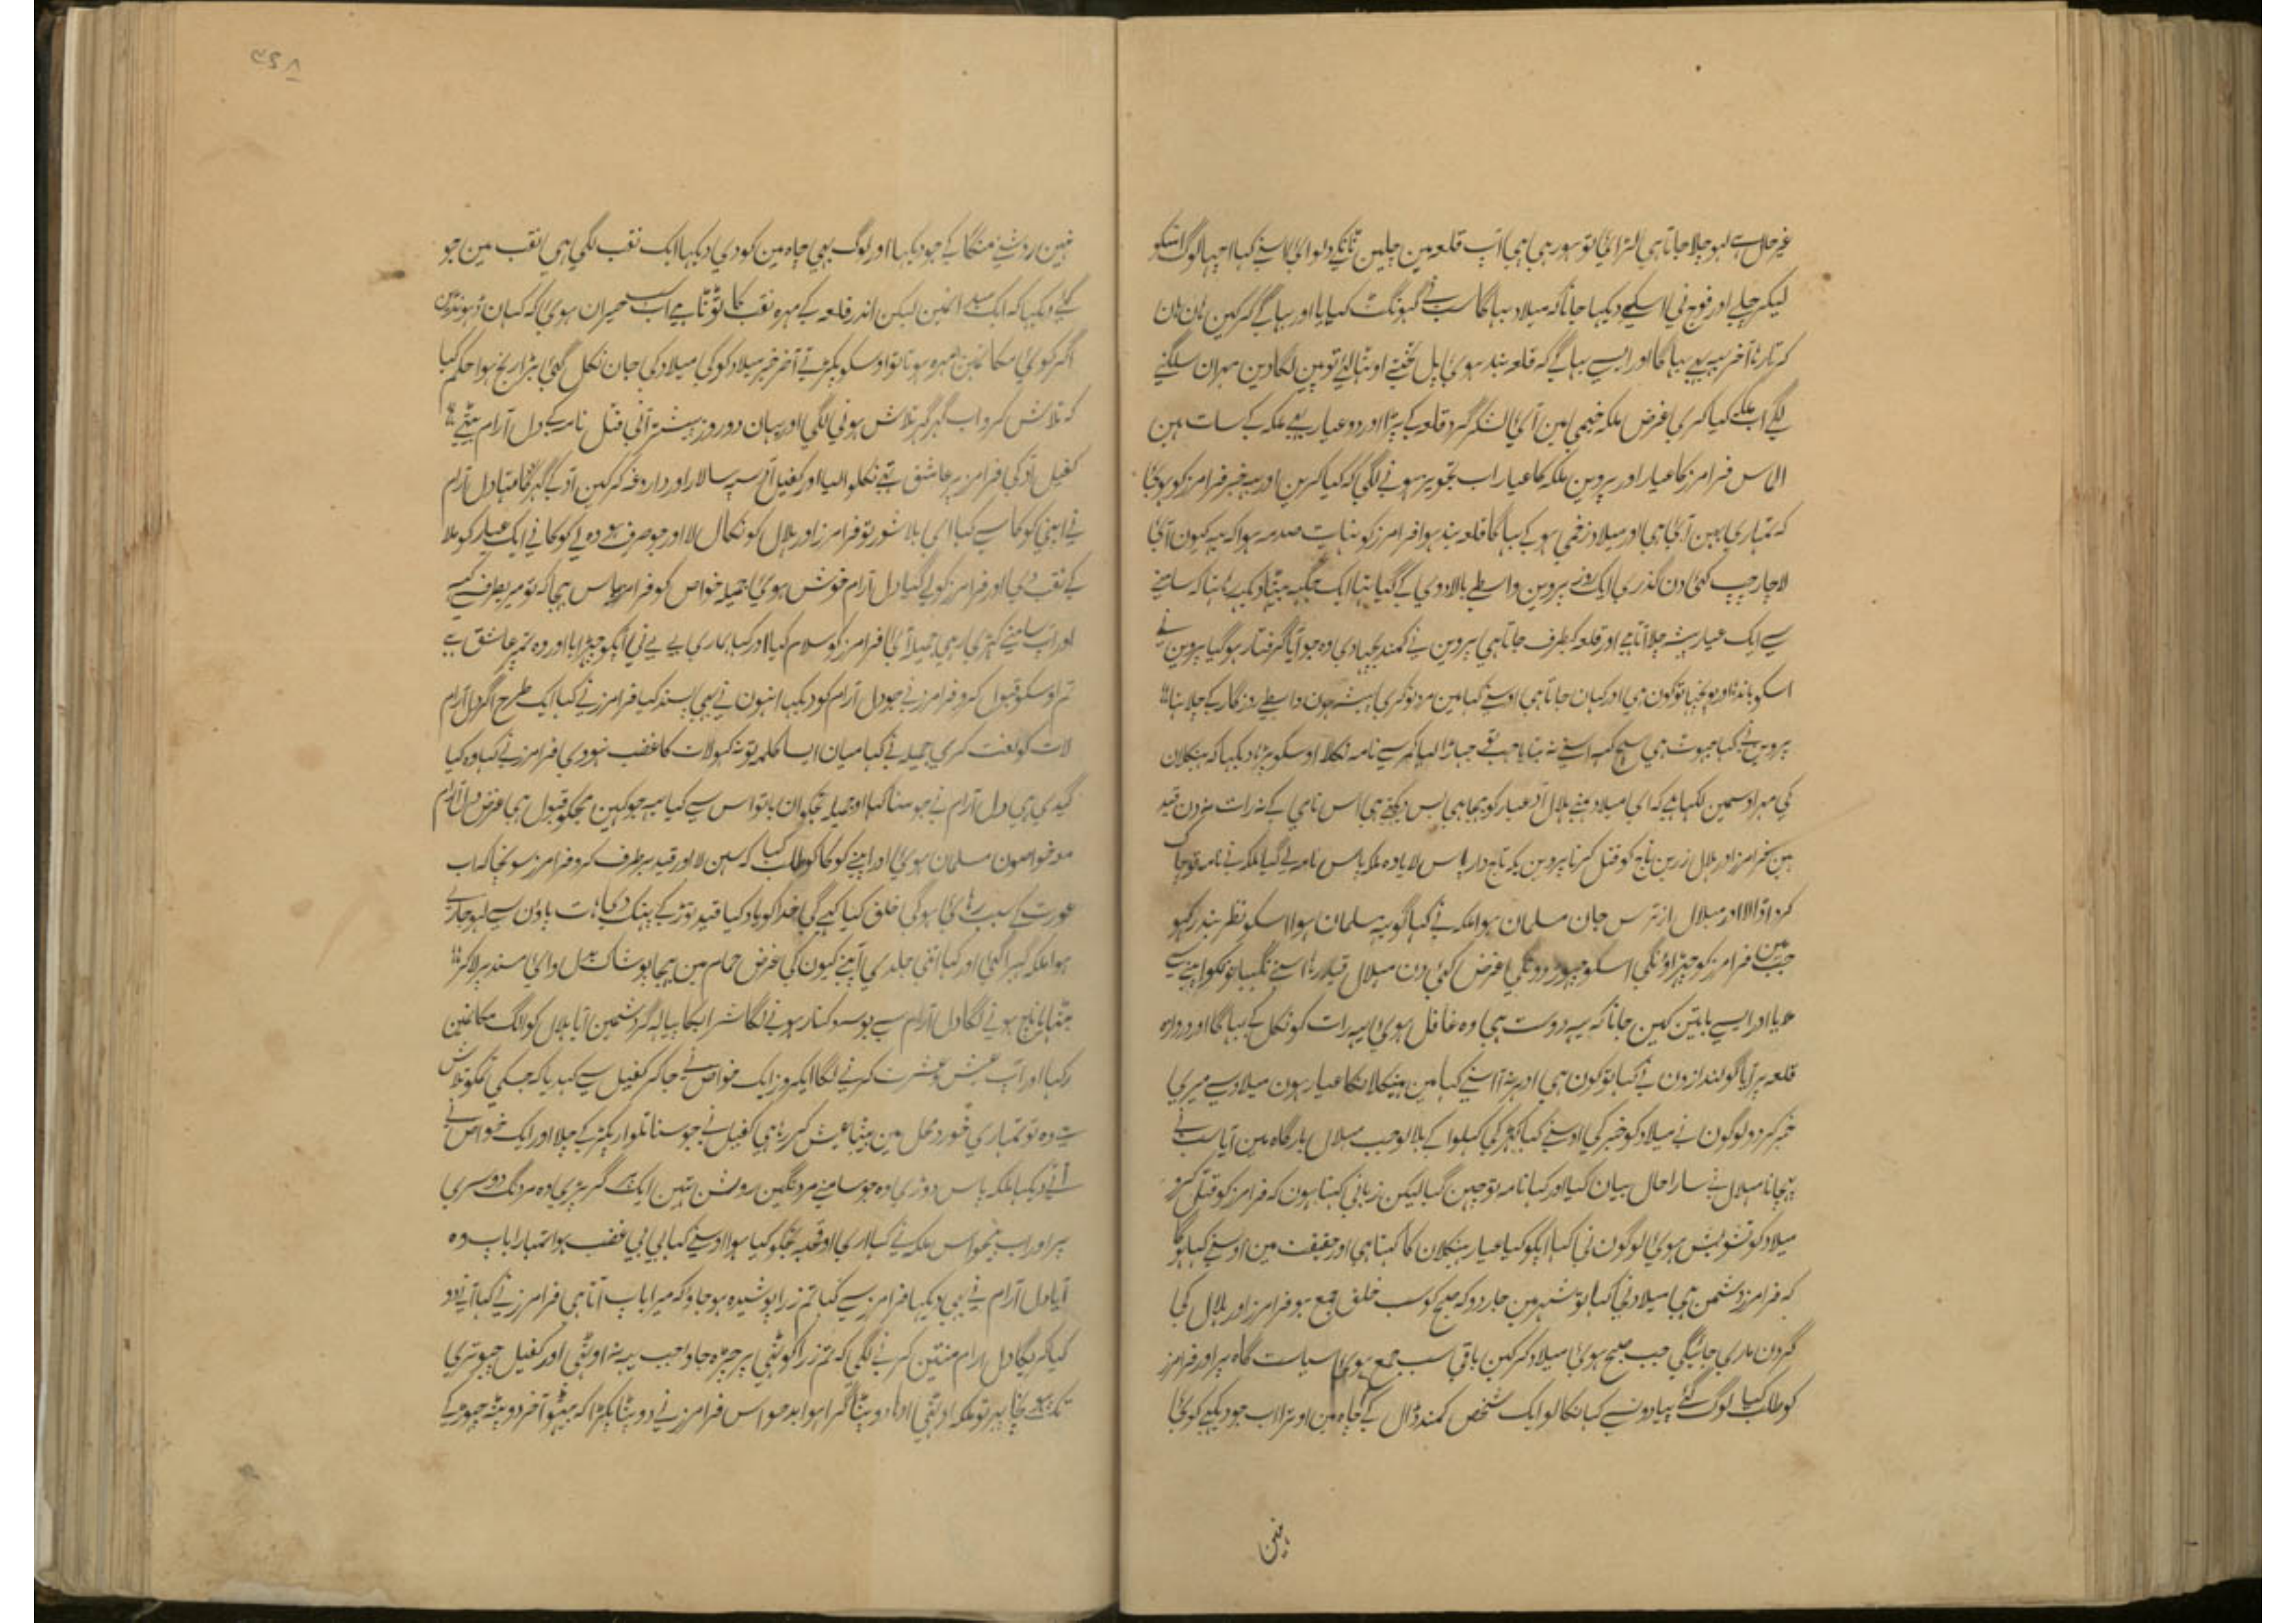 غیر حال ہے لہو چلا جاتا ہی لڑائی تو ہو رہی ہی آپ قلعہ مین چلین ٹانکے دلوائی اسنے کہا اچہا لوگ اسکو
لیکر چلے اور فوج نی اسکے دیکہا جانا کہ میلاد بہاگا سب نے گہونگٹ کہایا اور بہاگے کرکین ہان ہان
کرتا رہا آخر یہ بہی بہاگا اور ایسے بہاگے کہ قلعہ بند ہوئی پل تختے اوٹہالئے توپین لگادین مہران سلگنے
لگے اب ملکہ کیا کری غرض ملکہ خیمی مین آئی لشکر گرد قلعہ کے پڑا اور دو عیار بہی ملکہ کے سات ہین
الماس فرامرز کا عیار اور پروین ملکہ کا عیار اب تجویز ہونے لگی کہ کیا کرین اور یہ خبر فرامرز کو پہونچی
کہ تمہاری بہین آئی ہی اور میلاد زخمی ہو کے بہاگا قلعہ بند ہوا فرامرز کو نہایت صدمہ ہوا کہ یہ کیون آئی
لاچار چپ کئی دن گذری ایک روز پروین واسطے بالادوی کے گیا تہا ایک جگہہ بیٹہا دیکہہ رہا تہا کہ سامنے
سے ایک عیار پیشہ چلا آتا ہے اور قلعہ کیطرف جاتا ہی پروین نے کمند بچہادی وہ جو آیا گرفتار ہو گیا پروین نے
اسکو باندہا اور پوچہا تو کون ہی اور کہان جاتا ہی اوسنے کہا مین مرد نوکری پیشہ ہون واسطے روزگار کے چلا تہا
پروین نے کہا جہوٹ ہی سچ کہہ اسنے نہ بتایا جب تو جہاڑا لیا کمر سے نامہ نکلا اوسکو پڑہا دیکہا کہ ہیکلان
کی مہر اوسمین لکہا ہے کہ ای میلاد ہمنے ہلال عیار کو بہیجا ہی بس دیکہتے ہی اس نامی کے نہ رات نہ دن قید
مین فرامرز اور ہلال زرین تاج کو قتل کرنا پروین یکہ تاج دار پاس لایا وہ ملکہ پاس نامہ لے گیا ملکہ نے نامہ تو چاک
کر ڈالا اور ہلال از ترس جان مسلمان ہوا ملکہ نے کہا گو یہ مسلمان ہوا اسکو نظر بند رکہو
جب مین فرامرز کو چہڑاؤنگی اسکو چہوڑ دونگی غرض کئی دن ہلال قید رہا اسنے نگہبانونکو اپنے سے
ملایا اور ایسے باتین کہین جانا کہ یہ دوست ہی وہ غافل ہوی یہ رات کو نکل کے بہاگا اور دروازہ
قلعہ پر آیا گولندازون نے کہا تو کون ہی ادہر نہ آ اسنے کہا مین ہیکلان کا عیار ہون میلاد سے میری
خبر کر دو لوگون نے میلاد کو خبر کی اوسنے کہا کہڑکی کہلوا کے بلا لو جب ہلال بارگاہ مین آیا سب نے
پہچانا ہلال نے سارا حال بیان کیا اور کہا نامہ تو چہین گیا لیکن زبانی کہتا ہون کہ فرامرز کو قتل کرو
میلاد کو تشویش ہوئی لوگون نی کہا آپکو کیا عیار ہیکلان کا کہتا ہی اور حقیقت مین اوسنے کہا ہوگا
کہ فرامرز دشمن ہی میلاد نی کہا تو شہر مین جار دو کہ صبح کو سب خلق جمع ہو فرامرز اور ہلال کی
گردن ماری جائیگی جب صبح ہوئی میلاد کرکین باقی سب جمع ہوئی سیاست گاہ پر اور فرامرز
کو طلب کیا لوگ گئے پیادونسے کہا نکالو ایک شخص کمند ڈال کے چاہ مین اوترا اب جو دیکہے کوئی
نہین
نہین روشنی منگا کے جو دیکہا اور لوگ بہی چاہ مین کودی دیکہا ایک نقب لگی ہی نقب مین جو
گئے دیکہا کہ ایک سلے انہین لیکن اندر قلعہ کے مہرہ نقب کا ٹوٹا ہے اب سب حیران ہوئی کہ کہان ڈہونڈین
اگر کوئی مکانمین مہرہ ہوتا تو اوسکو پکڑتے آخر خبر میلاد کو کی میلاد کی جان نکل گئی بڑا رنج ہوا حکم کیا
کہ تلاش کرو اب گہر گہر تلاش ہونی لگی اور یہان دو روز پیشتر آنی قتل نامہ کے دل آرام بیٹے
کفیل کی فرامرز پر عاشق تہی نکلوا لیا اور کفیل سپہ سالار اور داروغہ کرکین کے گہر کا تہا دل آرام
نے اپنی کو کا سے کہا ای بلاشور تو فرامرز اور ہلال کو نکال لا اور جو صرف ہو وہ لے کوکا نے ایک عیار کو ملا
کے نقب دی اور فرامرز کو لے گیا دل آرام خوش ہوئی جمیلہ خواص کو فرامرز پاس بہیجا کہ تو میریطرف سے کہہ
اور آپ سامنے کہڑی رہی جمیلہ آئی فرامرز کو سلام کیا اور کہا ہماری بے بے نی آپکو چہڑایا اور وہ تمپر عاشق ہے
تم اوسکو قبول کرو فرامرز نے جو دل آرام کو دیکہا انہون نے بہی پسند کیا فرامرز نے کہا ایک طرح اگر دل آرام
لات کو لعنت کری جمیلہ نے کہا میان ایسا کلمہ تو نہ کہو لات کا غضب نہووی فرامرز نے کہا وہ کیا
گیدی ہی دل آرام نے جو سنا کہا او جمیلہ تجکو ان باتو اس سے کیا یہ جو کہین مجکو قبول ہی غرض دل آرام
مع خواصون مسلمان ہوئی اور اپنے کوکا کو طلب کیا کہ سہن لا اور قید برطرف کرو فرامرز سونچا کہ اب
عورت کے سبب رہائی ہوگی خلق کیا کہے گی خدا کو یاد کیا قید توڑ کے پہینک دی ہات پاؤن سے لہو جاری
ہوا ملکہ گہبرا گئی اور کہا اتنی جلدی آپنے کیون کی غرض حمام مین بہیجا پوشاک بدلوائی مسند پر لا کر
بیٹہایا ناچ ہونے لگا دل آرام سے بوسہ و کنار ہونے لگا شراب کا پیالہ گردشمین آیا ہلال کو الگ مکانمین
رکہا اور آپ عیش و عشرت کرنے لگا ایکروز ایک خواص نے جا کر کفیل سے کہدیا کہ جسکی تمکو تلاش
ہے وہ تو تمہاری خورد محل مین بیٹہا عیش کر رہا ہی کفیل نے جو سنا تلوار پکڑ کے چلا اور ایک خواص نے
آتے دیکہا ملکہ پاس دوڑی وہ جو سامنے مردنگین روشن تہین ایک پر گر پڑی وہ مردنگ دوسری
پر اور اب بدحواس ملکہ نے کہا اری او قحبہ تجکو کیا ہوا اوسنے کہا بی بی غضب ہوا تمہارا باپ وہ
آیا دل آرام نے بہی دیکہا فرامرز سے کہا تم ذرا پوشیدہ ہو جاؤ کہ میرا باپ آتا ہی فرامرز نے کہا آنے دو
کیا کریگا دل آرام منتین کرنے لگی کہ تم ذرا کوٹہی پر چڑہ جاؤ جب یہ نہ اوٹہی اور کفیل چبوتری
تک پہونچا پہر تو ملکہ اوٹہی آدہا دوپٹا گرا ہوا بدحواس فرامرز نے دوپٹا پکڑا کہ بیٹہو آخر دوپٹہ چہوڑ کے